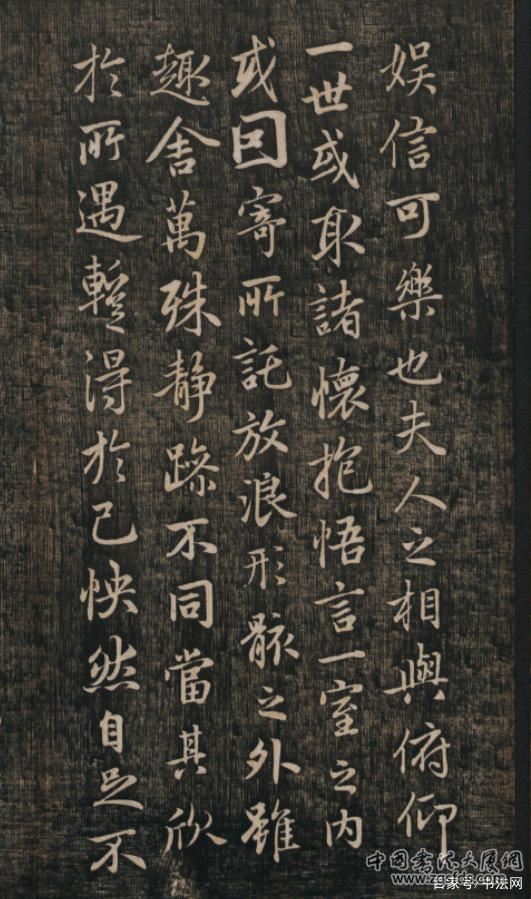 娱信可樂也夫人之相與俯仰
一世或取諸懷抱悟言一室之内
或因寄所託放浪形骸之外雖
趣舍萬殊静躁不同當其欣
於所遇暫得於己怏然自足不
中國書法大厦網
www.zgsfds.com
百家号/书法网